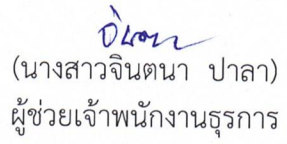 (นางสาวจินตนา ปาลา)
ผู้ช่วยเจ้าพนักงานธุรการ